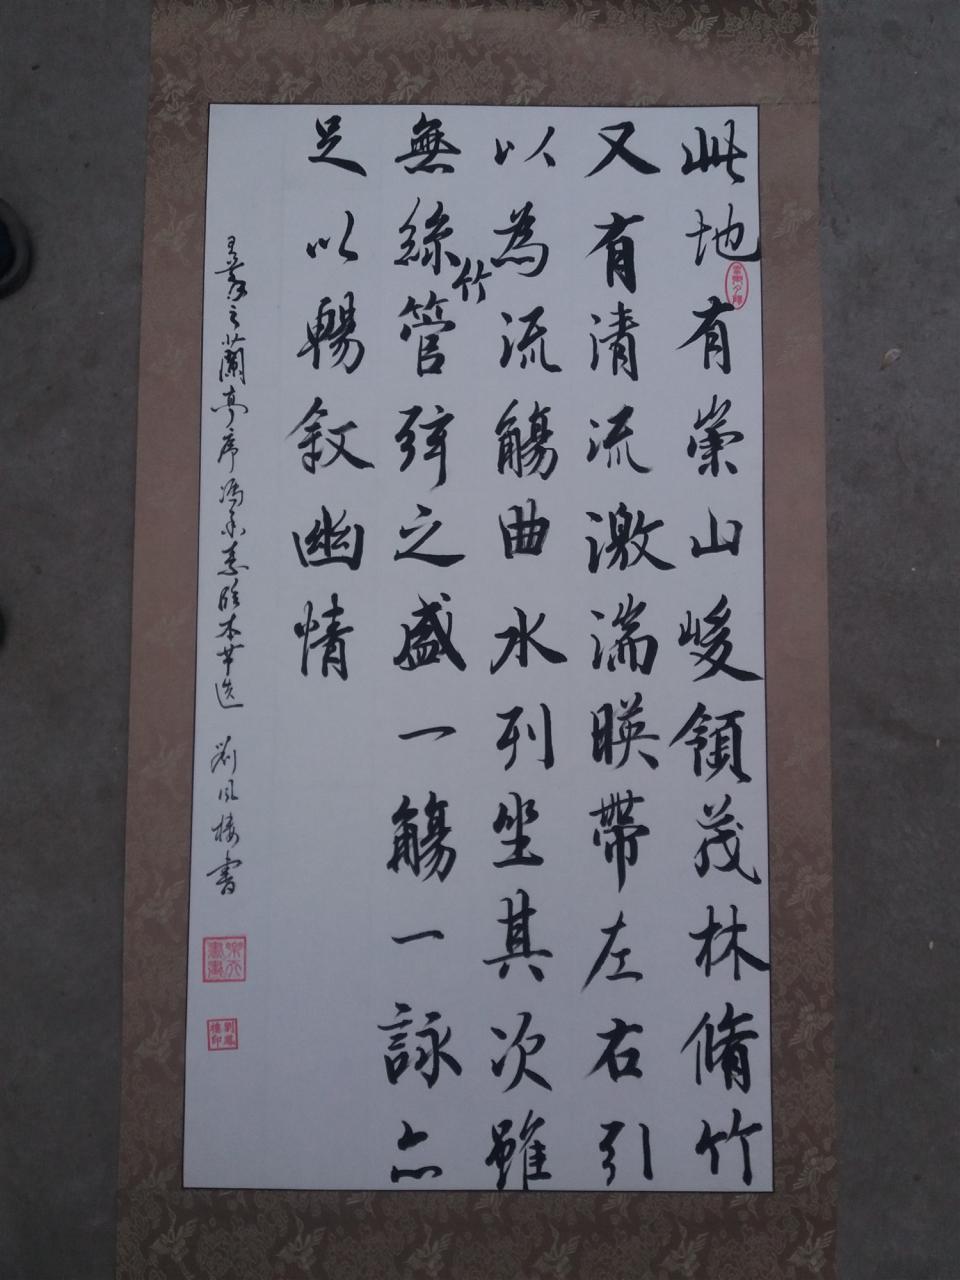 此地有崇山峻領茂林脩竹
又有清流激湍暎帶左右引
以為流觴曲水列坐其次雖
無絲竹管弦之盛一觴一詠亦
足以暢叙幽情
王羲之蘭亭序馮承素臨本节选 刘凤楼書
劉鳳樓印